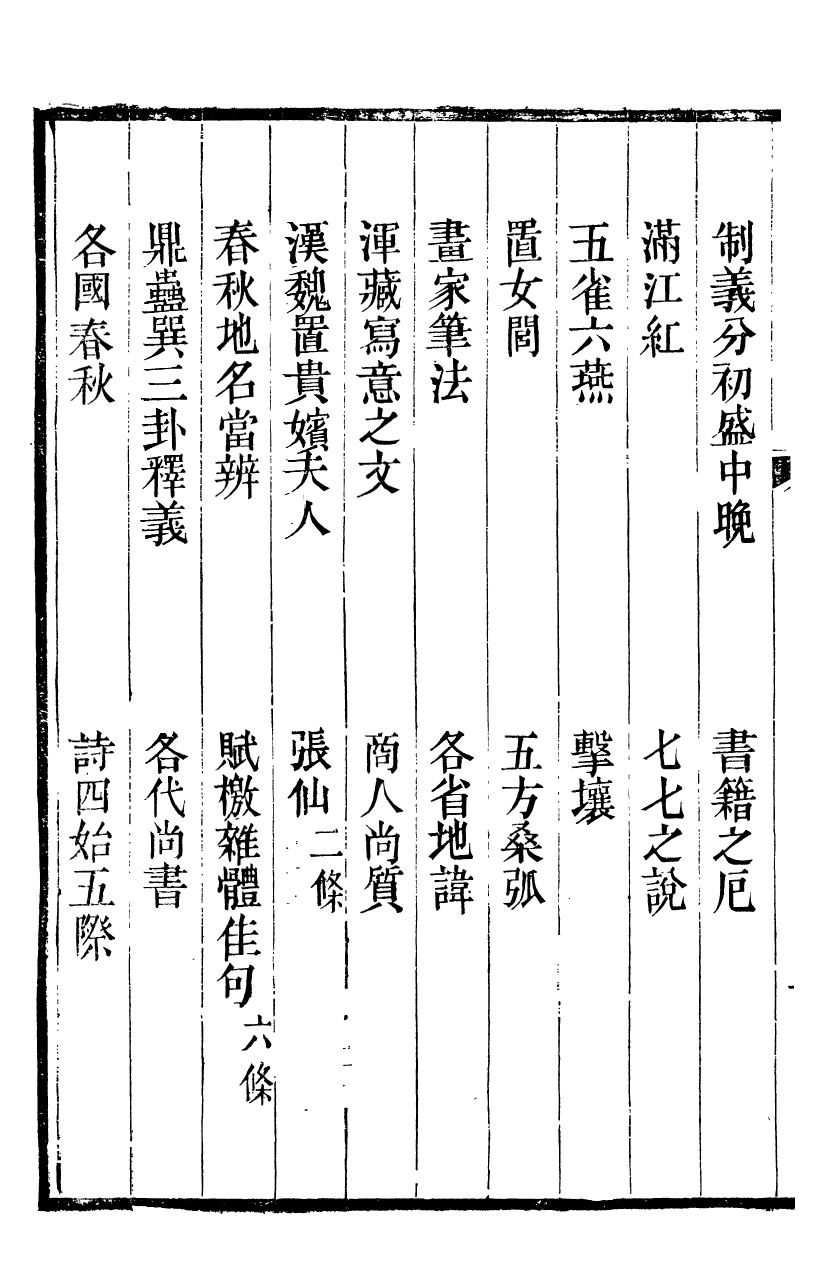 制義分初盛中晚　書籍之厄
滿江紅　七七之說
五雀六燕　擊壤
置女閭　五方桑弧
畫家筆法　各省地諱
渾藏寫意之文　商人尚質
漢魏置貴嬪夫人　張仙二條
春秋地名當辨　賦檄雜體佳句六條
鼎蠱巽三卦釋義　各代尚書
各國春秋　詩四始五際